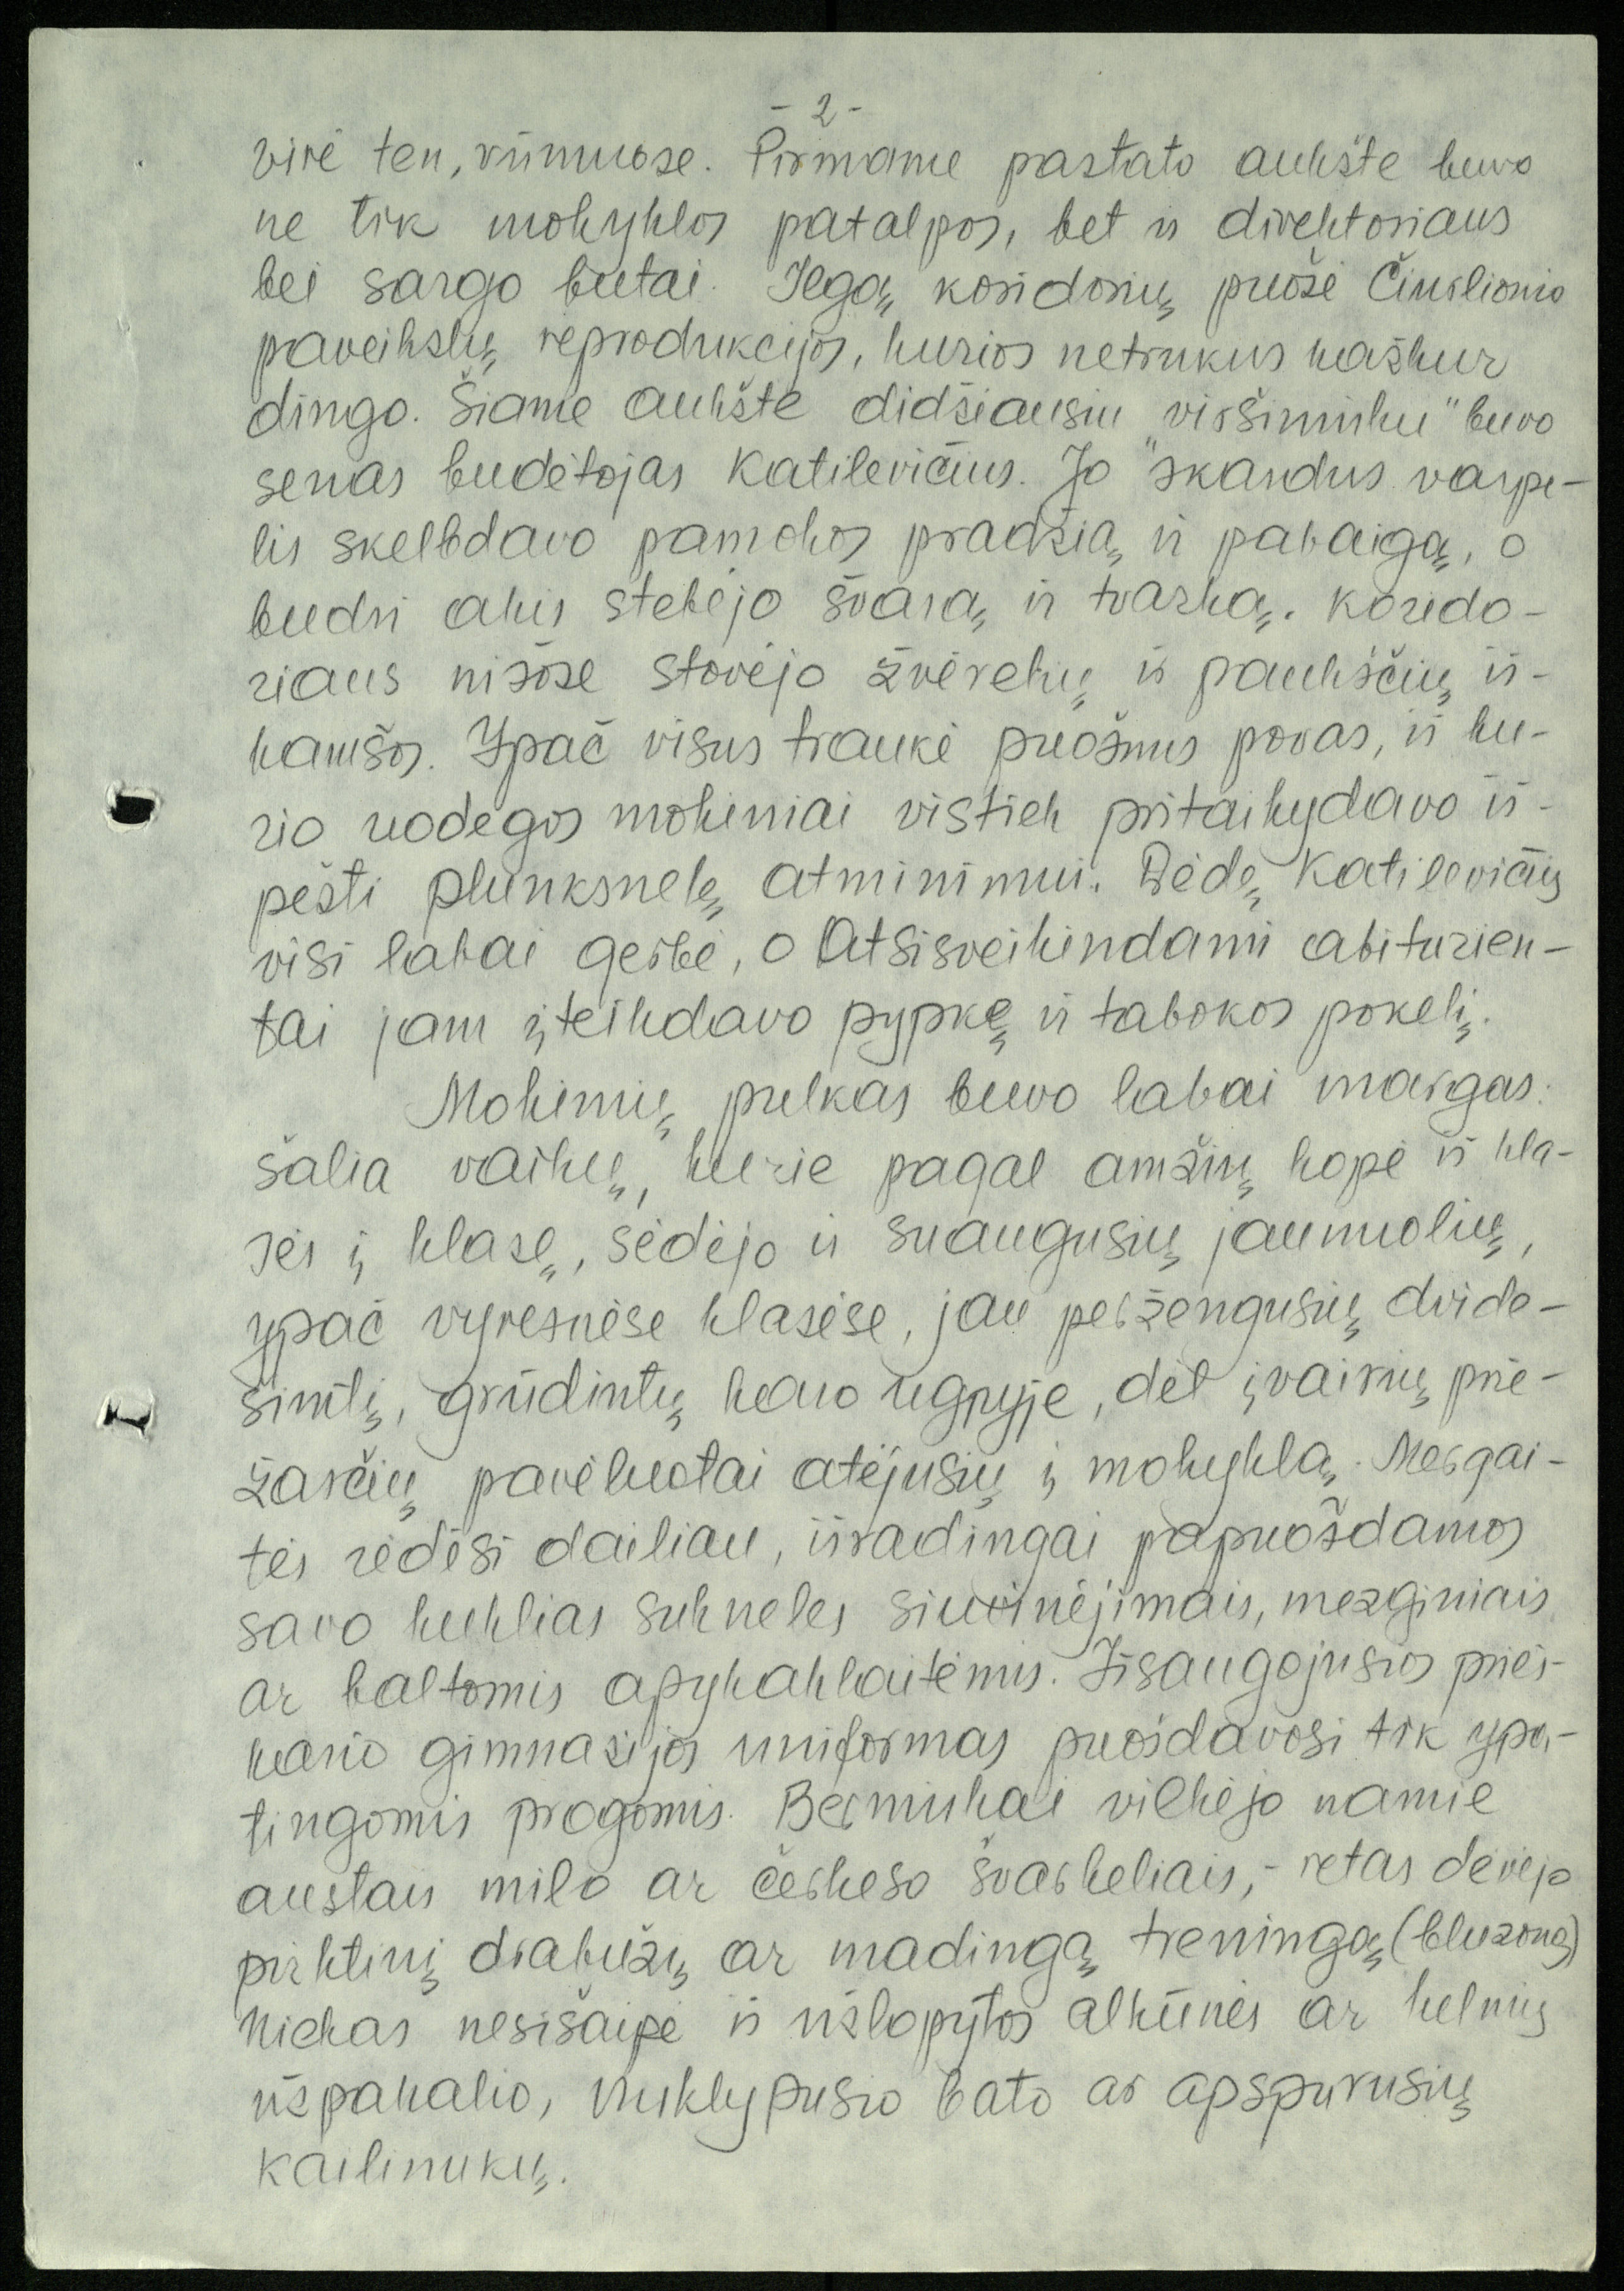 - 2 -
virė ten, rūmuose. Pirmame pastato aukšte buvo
ne tik mokyklos patalpos, bet ir direktoriaus
bei sargo butai. Ilgą koridorių puošė Čiurlionio
paveikslų reprodukcijos, kurios netrukus kažkur
dingo. Šiame aukšte didžiausiu "viršininku" buvo
senas budėtojas Katilevičius. Jo skardus varpe-
lis skelbdavo pamokos pradžią ir pabaigą, o
budri akis stebėjo švarą ir tvarką. Korido-
riaus nišose stovėjo žvėrelių ir paukščių iš-
kamšos. Ypač visus traukė puošnus povas, iš ku-
rio uodegos mokiniai vistiek pritaikydavo iš-
pešti plunksnelę atminimui. Dėdę Katilevičių
visi labai gerbė, o atsisveikindami abiturien-
tai jam įteikdavo pypkę ir tabokos pokelį.
Mokinių pulkas buvo labai margas:
šalia vaikų, kurie pagal amžių kopė iš kla-
sės į klasę, sėdėjo ir suaugusių jaunuolių,
ypač vyresnėse klasėse, jau peržengusių dvide-
šimtį, grūdintų karo ugnyje, dėl įvairių prie-
žasčių pavėluotai atėjusių į mokyklą. Mergai-
tės rėdėsi dailiau, išradingai papuošdamos
savo kuklias sukneles siuvinėjimais, mezginiais
ar baltomis apykaklaitėmis. Išsaugojusios prieš-
kario gimnazijos uniformas puošdavosi tik ypa-
tingomis progomis. Berniukai vilkėjo namie
austais milo ar čerkeso švarkeliais, - retas dėvėjo
pirktinį drabužį ar madingą treningą (bluzoną)
Niekas nesišaipė iš užlopytos alkūnės ar kelnių
užpakalio, nuklypusio bato ar apspurusių
kailinukų.